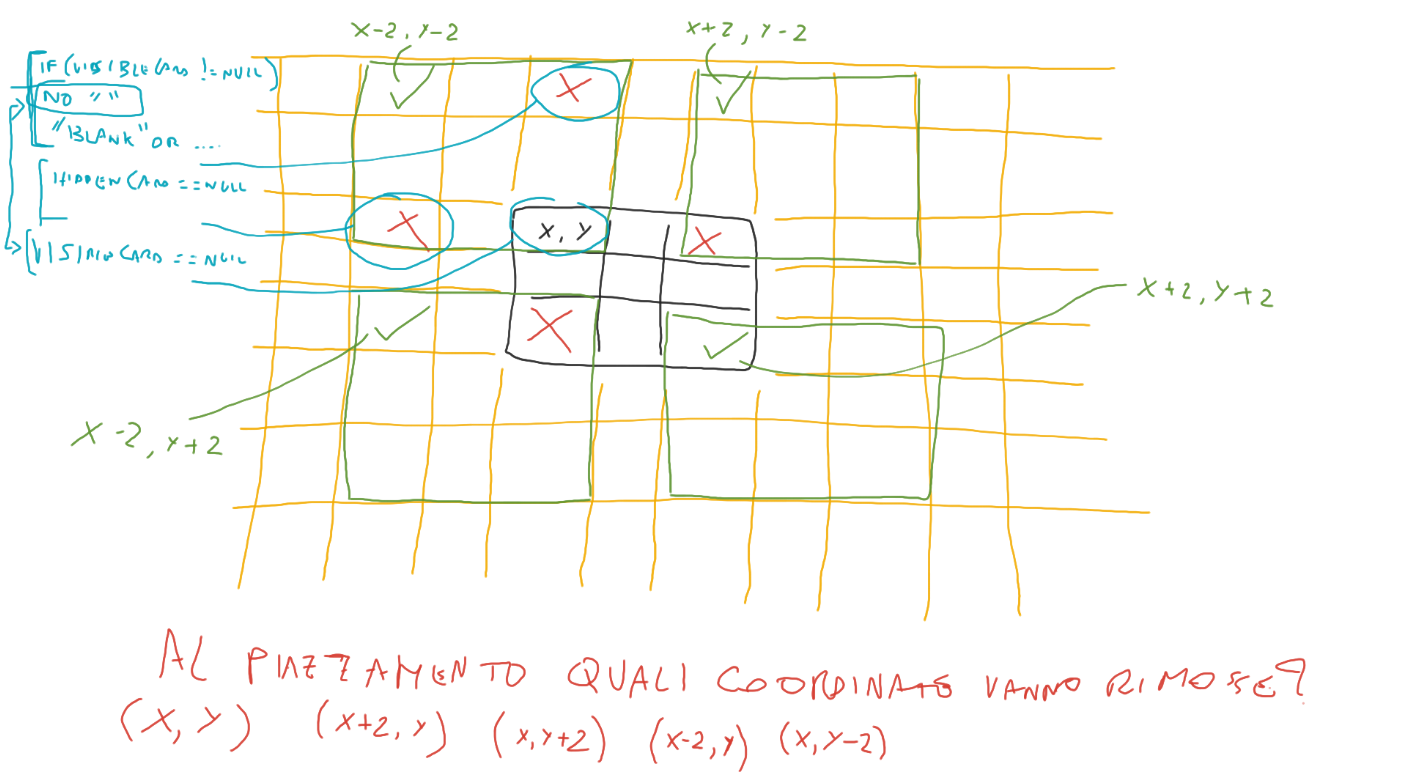 X-2, Y-2
X+2, Y-2
IF (VISIBLECARD != NULL)
NO " "
"BLANK" OR ....
HIDDENCARD == NULL
X, Y
VISIBLECARD == NULL
X+2, Y+2
X-2, Y+2
AL PIAZZAMENTO QUALI COORDINATE VANNO RIMOSSE?
(X, Y) (X+2, Y) (X, Y+2) (X-2, Y) (X, Y-2)